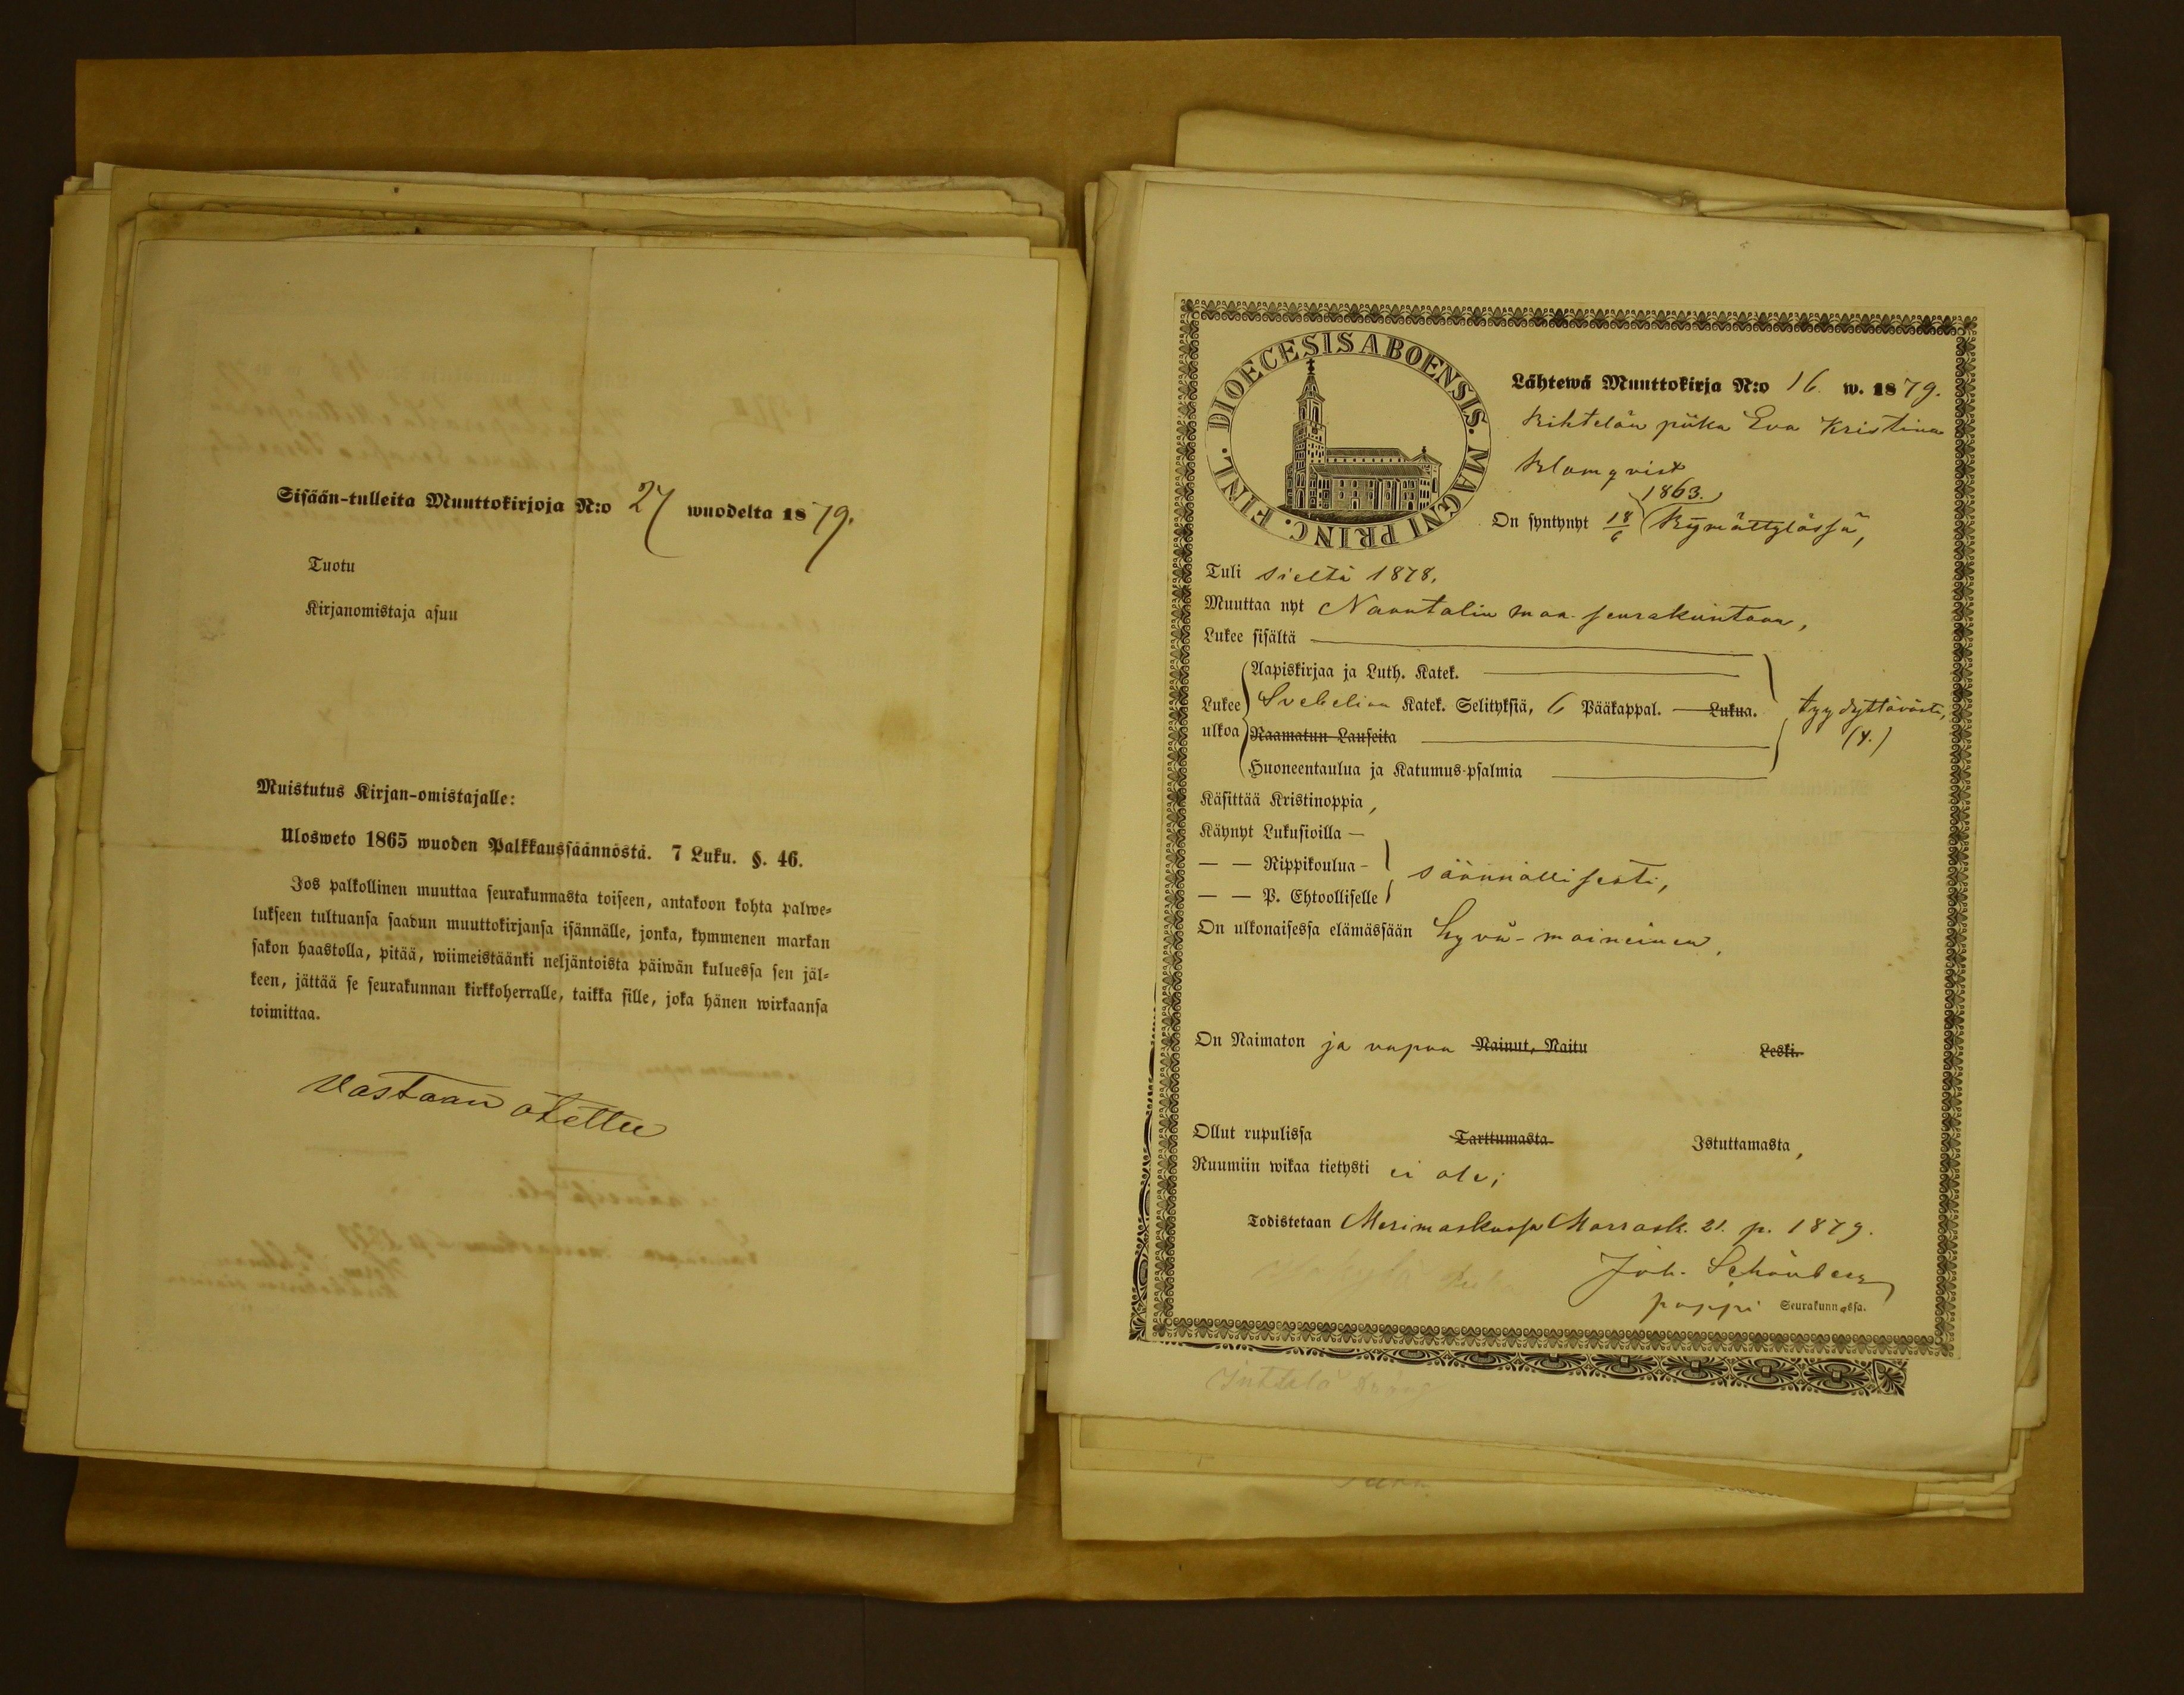 Sisään-tulleita Muuttokirjoja N:o 27 wuodelta 1879.
Tuotu
Kirjanomistaja asuu
Muistutus Kirjan-omistajalle:
Ulosweto 1865 wuoden Palkkaussäännöstä. 7 Luku. §. 46.
Jos palkollinen muuttaa seurakunnasta toiseen, antakoon kohta palwe=
lukseen tultuansa saadun muuttokirjansa isännälle, jonka, kymmenen markan
sakon haastolla, pitää, wiimeistäänki neljäntoista päiwän kuluessa sen jäl=
keen, jättää se seurakunnan kirkkoherralle, taikka sille, joka hänen wirkaansa
toimittaa.
Vastaan otettu
DIOECESIS ABOENSIS. MAGNI PRINC. FINL.
Lähtewä Muuttokirja N:o 16. w. 1879.
Kihtelän piika Eva Kristina
Blomqvist
1863.
On syntynyt 18/6 Rymättylässä,
Tuli sieltä 1878.
Muuttaa nyt Naantalin maa-seurakuntaan,
Lukee sisältä
Aapiskirjaa ja Luth. Katek.
Lukee Svebeliun Katek. Selityksiä, 6 Pääkappal. Lukua. tyydyttävästi,
ulkoa Raamatun Lauseita (4.)
Huoneentaulua ja Katumus-psalmia
Käsittää Kristinoppia,
Käynyt Lukusioilla —
— — Rippikoulua - säännöllisesti,
— — P. Ehtoolliselle
On ulkonaisessa elämässään hyvä-maineinen,
On Naimaton ja vapaa Nainut, Naitu Leski.
Ollut rupulissa Tarttumasta Istuttamasta,
Ruumiin wikaa tietysti ei ole;
Todistetaan Merimaskussa Marrask. 21. p. 1879.
Joh. Schönberg
pappi Seurakunnassa.